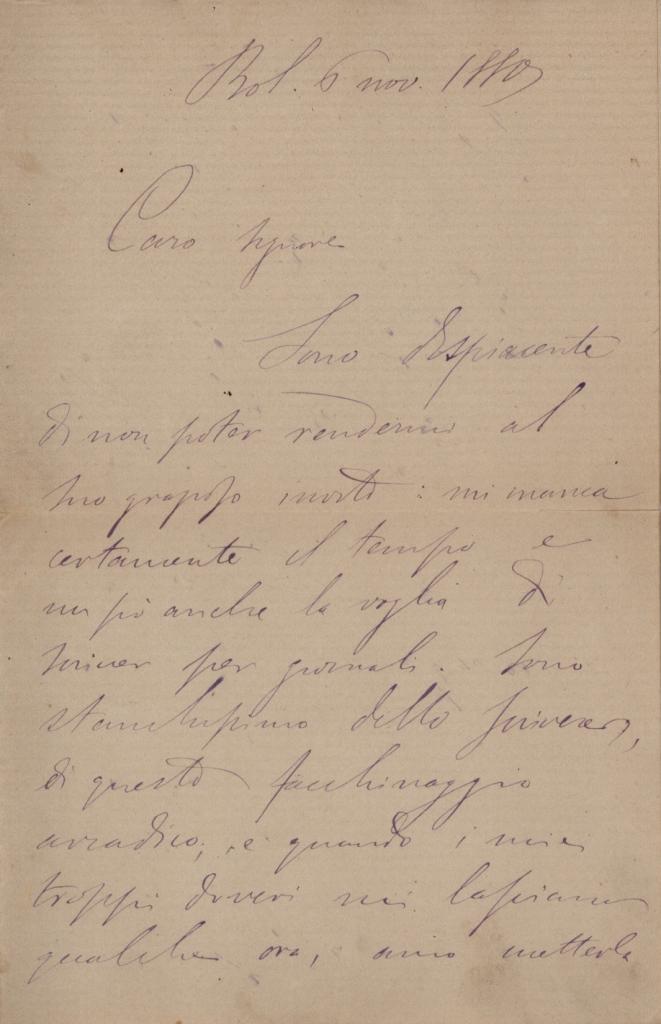 Bol. 6 nov. 1880
Caro signore
Sono dispiacente
di non poter rendermi al
suo grazioso invito: mi manca
certamente il tempo e
un pò anche la voglia di
scriver per giornali. Sono
stanchissimo dello scrivere,
di questo facchinaggio
e quando i miei
troppi doveri mi lasciano
qualche ora, amo metterla